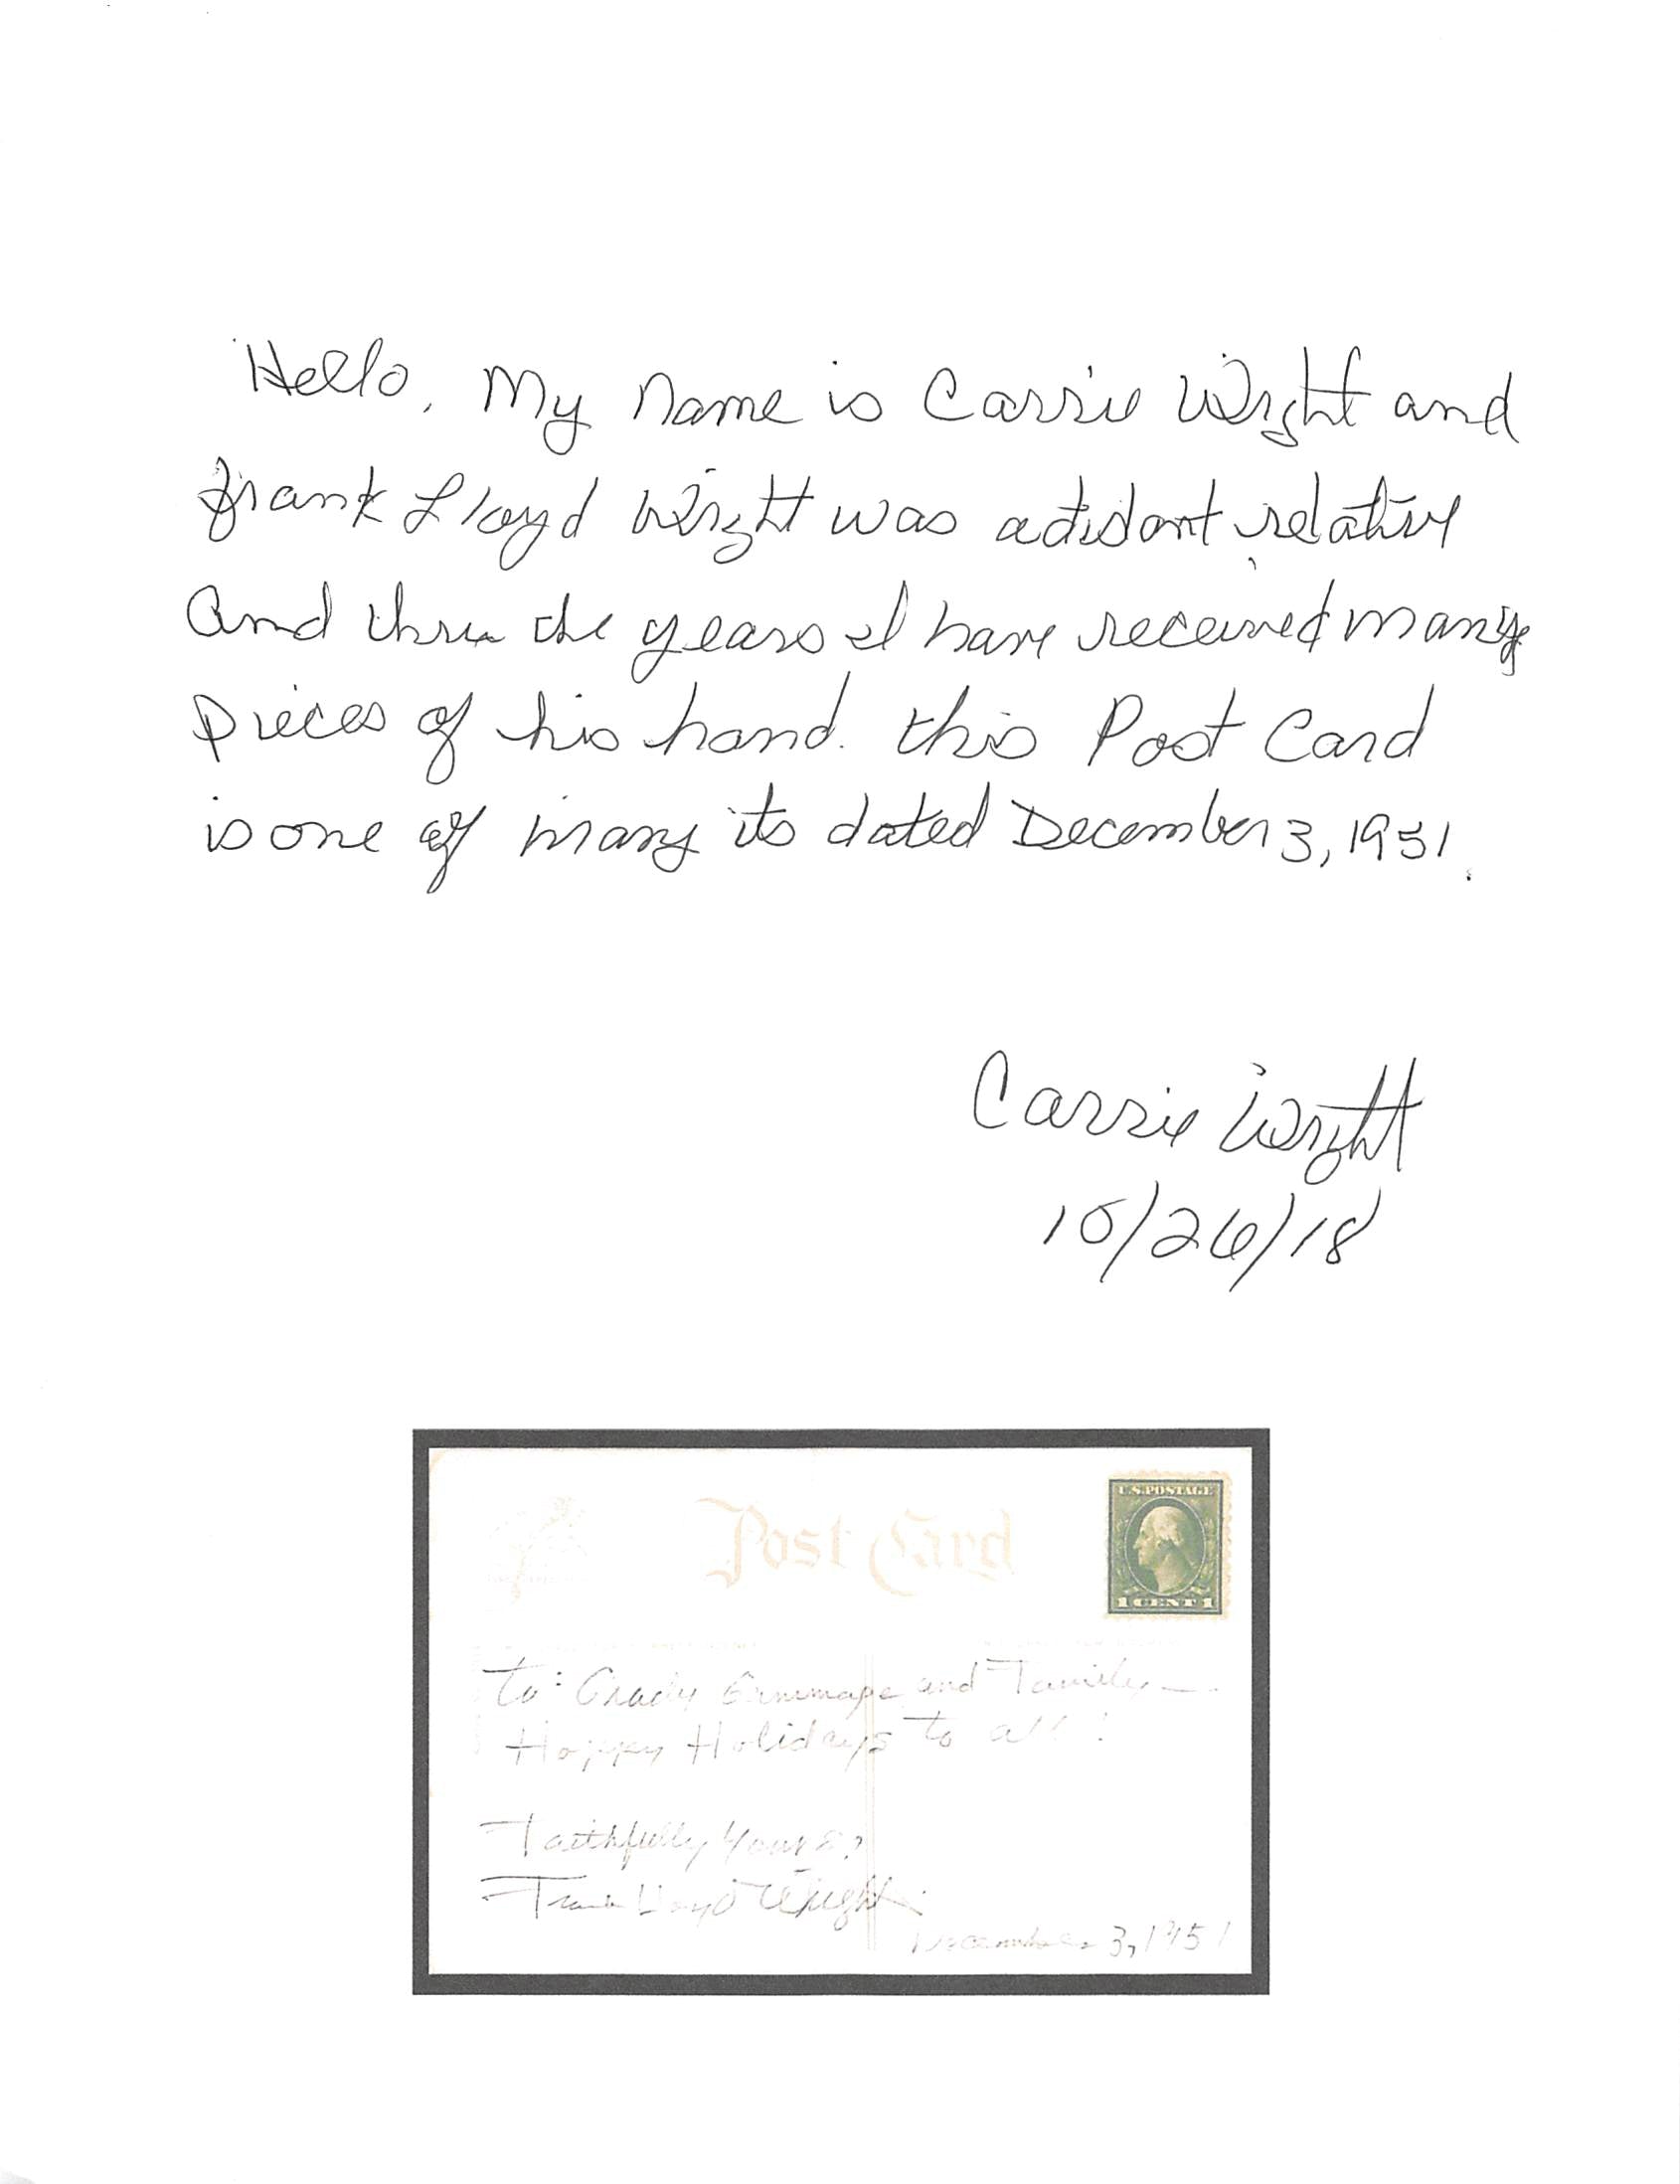 Hello, My Name is Carrie Wright and
frank Lloyd Wright was a distant relative
And thru the years I have received many
pieces of his hand. this Post Card
is one of many its dated December 3, 1951.
Carrie Wright
10/26/18
Post Card
U.S. POSTAGE
1 CENT 1
to: Grady Gammage and Family —
Happy Holidays to all!
Faithfully Yours,
Frank Lloyd Wright
December 3, 1951